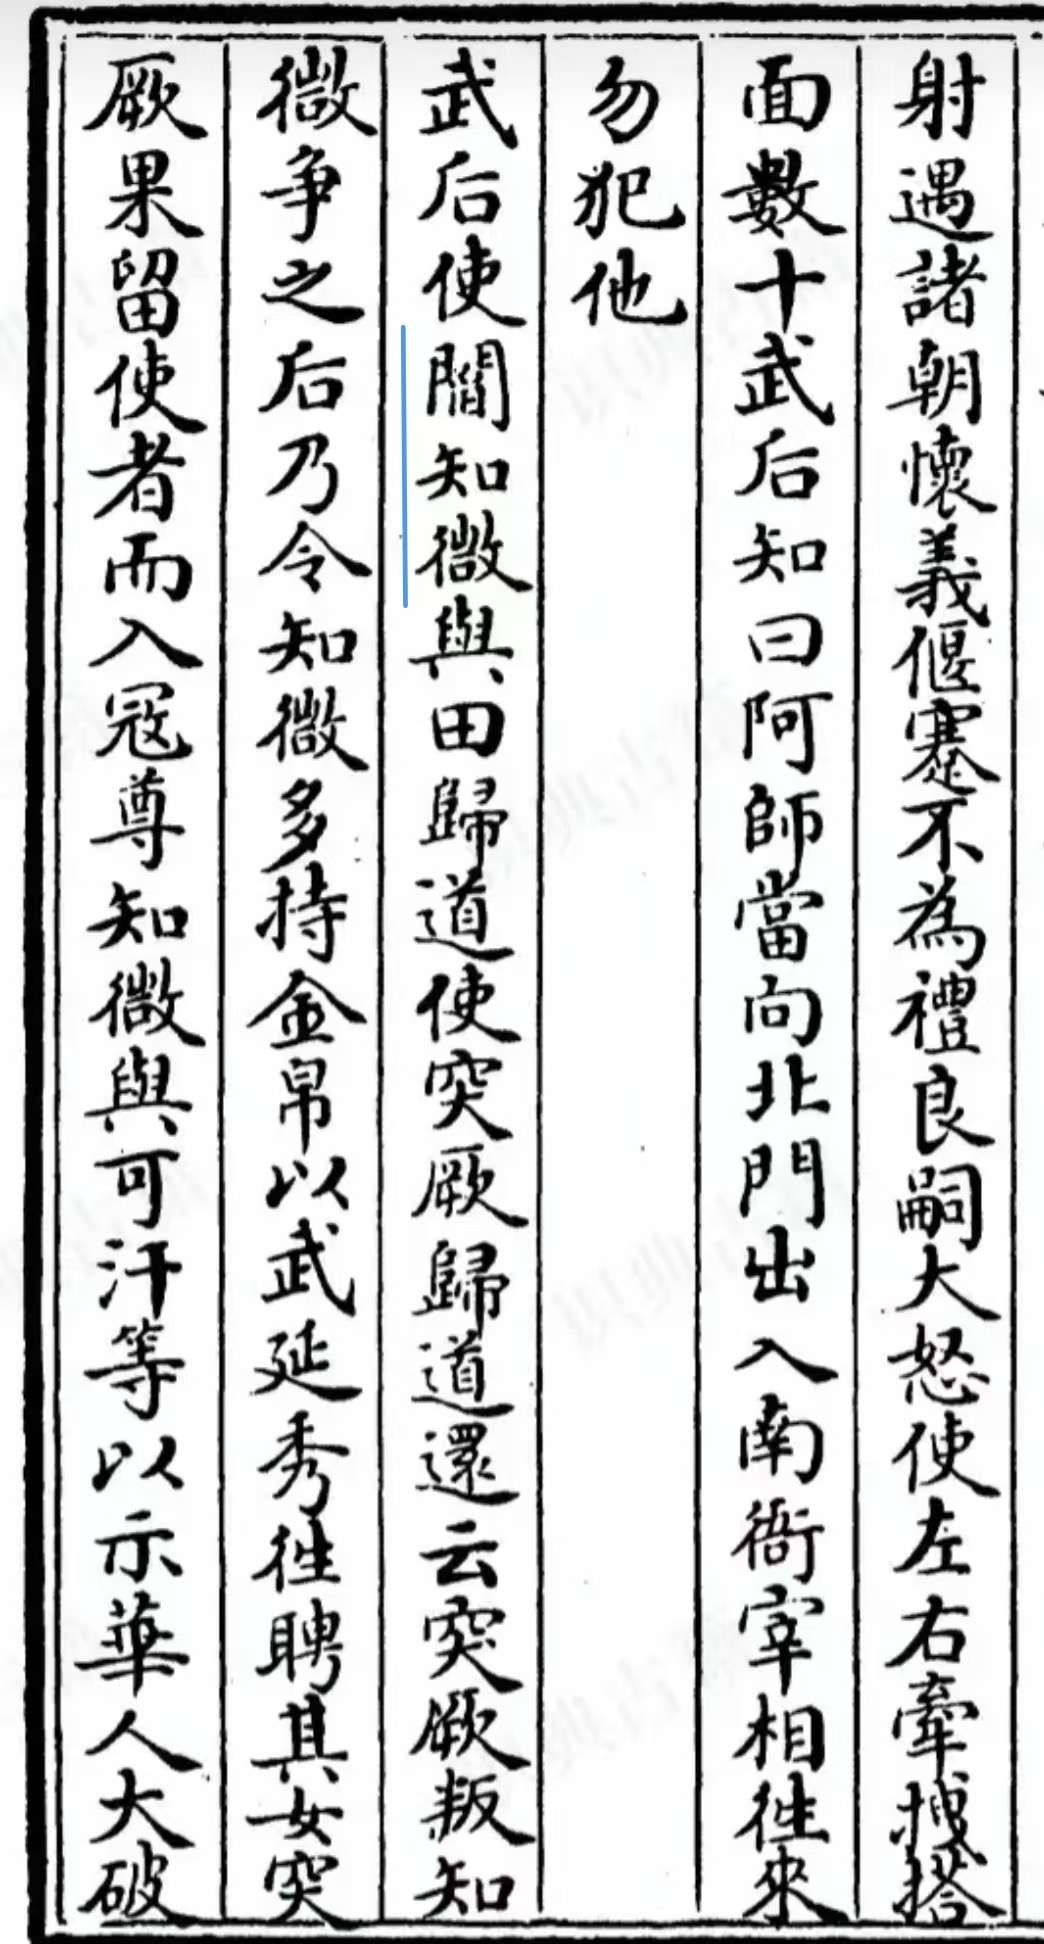 射遇諸朝懷義偃蹇不為禮良嗣大怒使左右牽拽搭
面數十武后知曰阿師當向北門出入南衙宰相徃來
勿犯他
武后使閻知微與田歸道使突厥歸道還云突厥叛知
微争之后乃令知微多持金帛以武延秀徃聘其女突
厥果留使者而入冦尊知微與可汗等以示華人大破